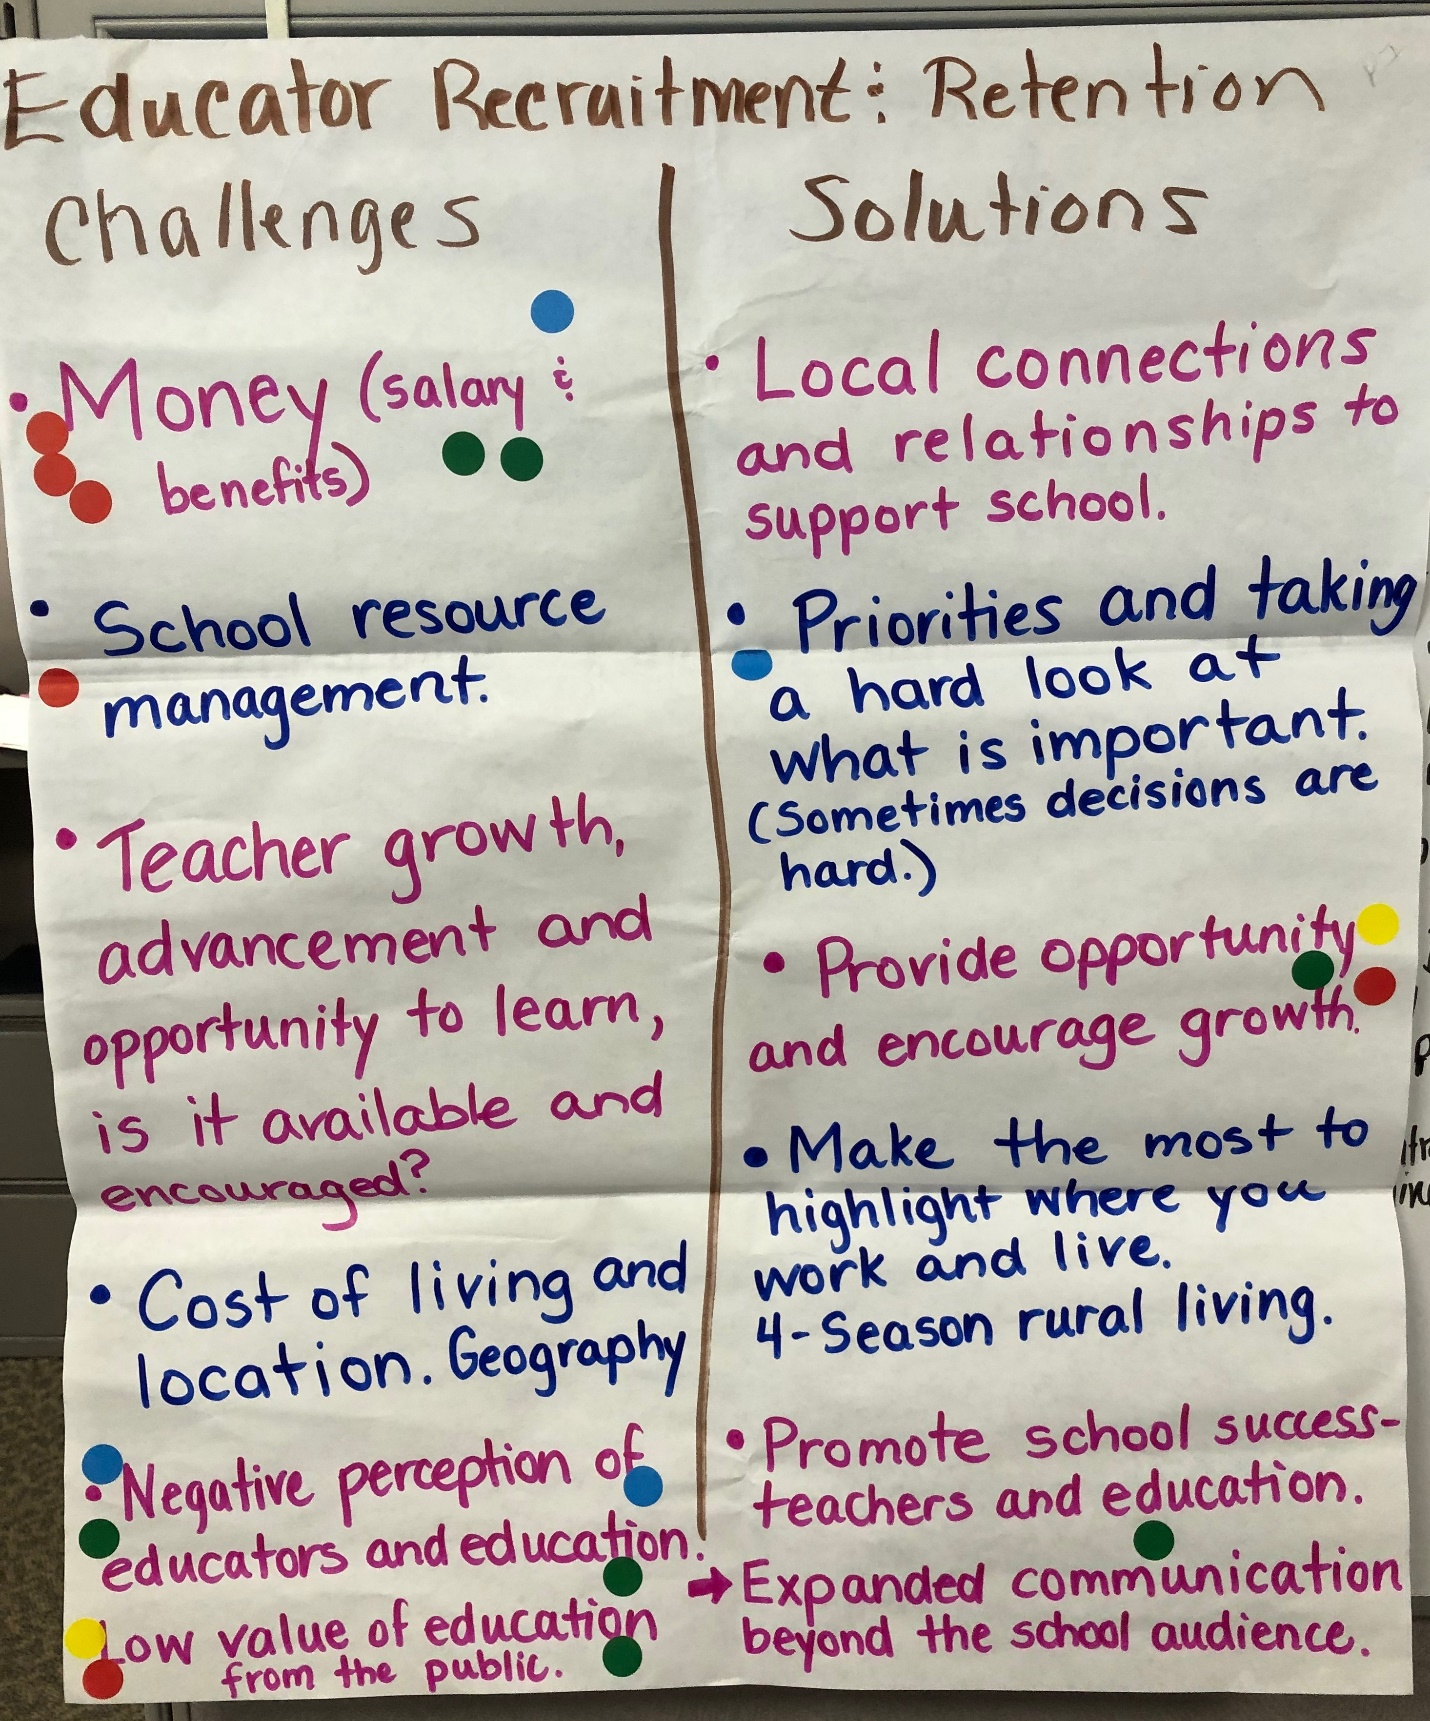 Educator Recruitment: Retention
Challenges
• Money (salary &
benefits)
• School resource
management.
• Teacher growth,
advancement and
opportunity to learn,
is it available and
encouraged?
• Cost of living and
location. Geography
• Negative perception of
educators and education.
Low value of education
from the public.
Solutions
• Local connections
and relationships to
support school.
• Priorities and taking
a hard look at
what is important.
(Sometimes decisions are
hard.)
• Provide opportunity
and encourage growth.
• Make the most to
highlight where you
work and live.
4-Season rural living.
• Promote school success-
teachers and education.
→ Expanded communication
beyond the school audience.